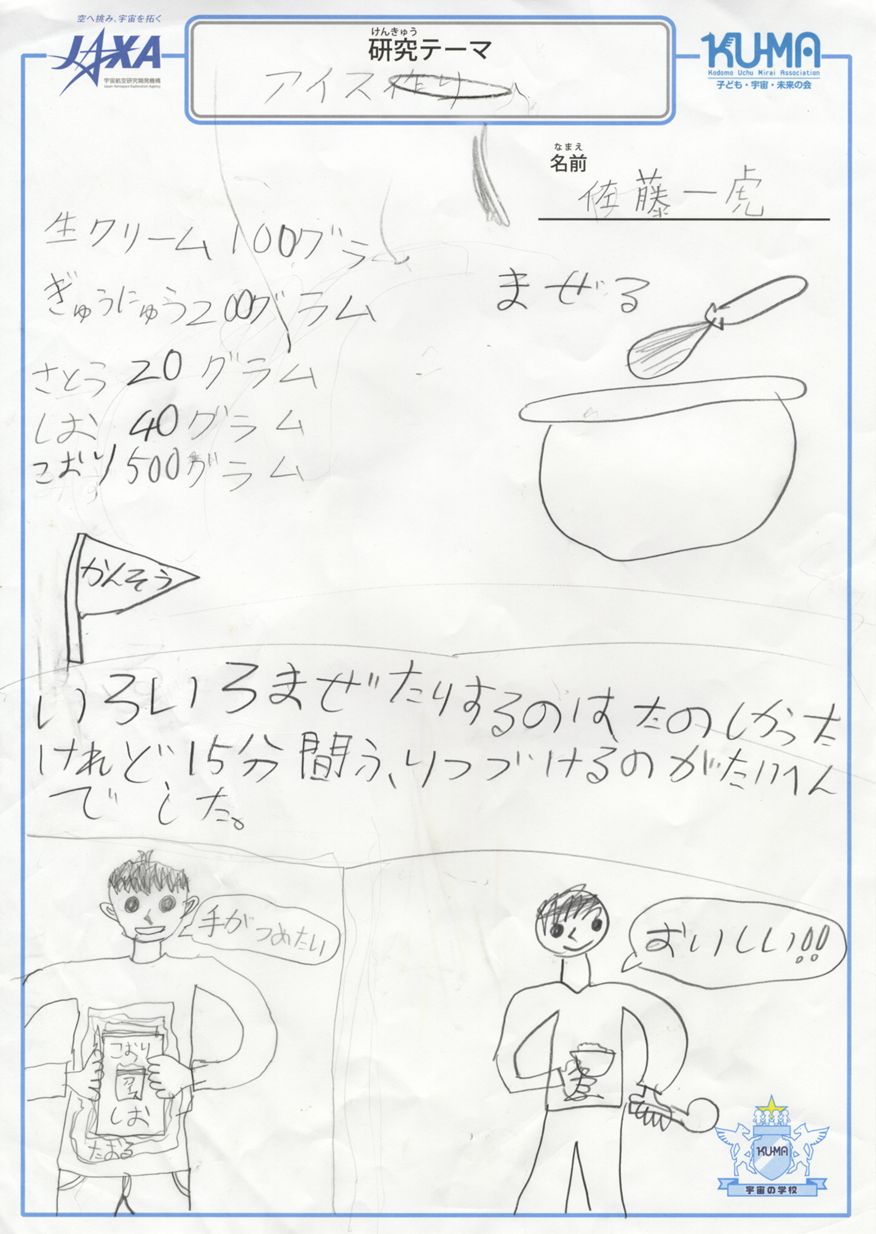 空へ挑み、宇宙を拓く
JAXA
宇宙航空研究開発機構
Japan Aerospace Exploration Agency
けんきゅう
研究テーマ
アイス作り
KU-MA
Kodomo Uchu Mirai Association
子ども・宇宙・未来の会
なまえ
名前
佐藤一虎
生クリーム100グラ
ぎゅうにゅう200グラム
さとう 20 グラム
しお 40グラム
こおり500グラム
まぜる
かんそう
いろいろまぜたりするのは、たのしかった
けれど、15分間ふりつづけるのがたいへん
でした。
手がつめたい
おいしい!!
こおり
アイス
しお
たおる
KU-MA
宇宙の学校